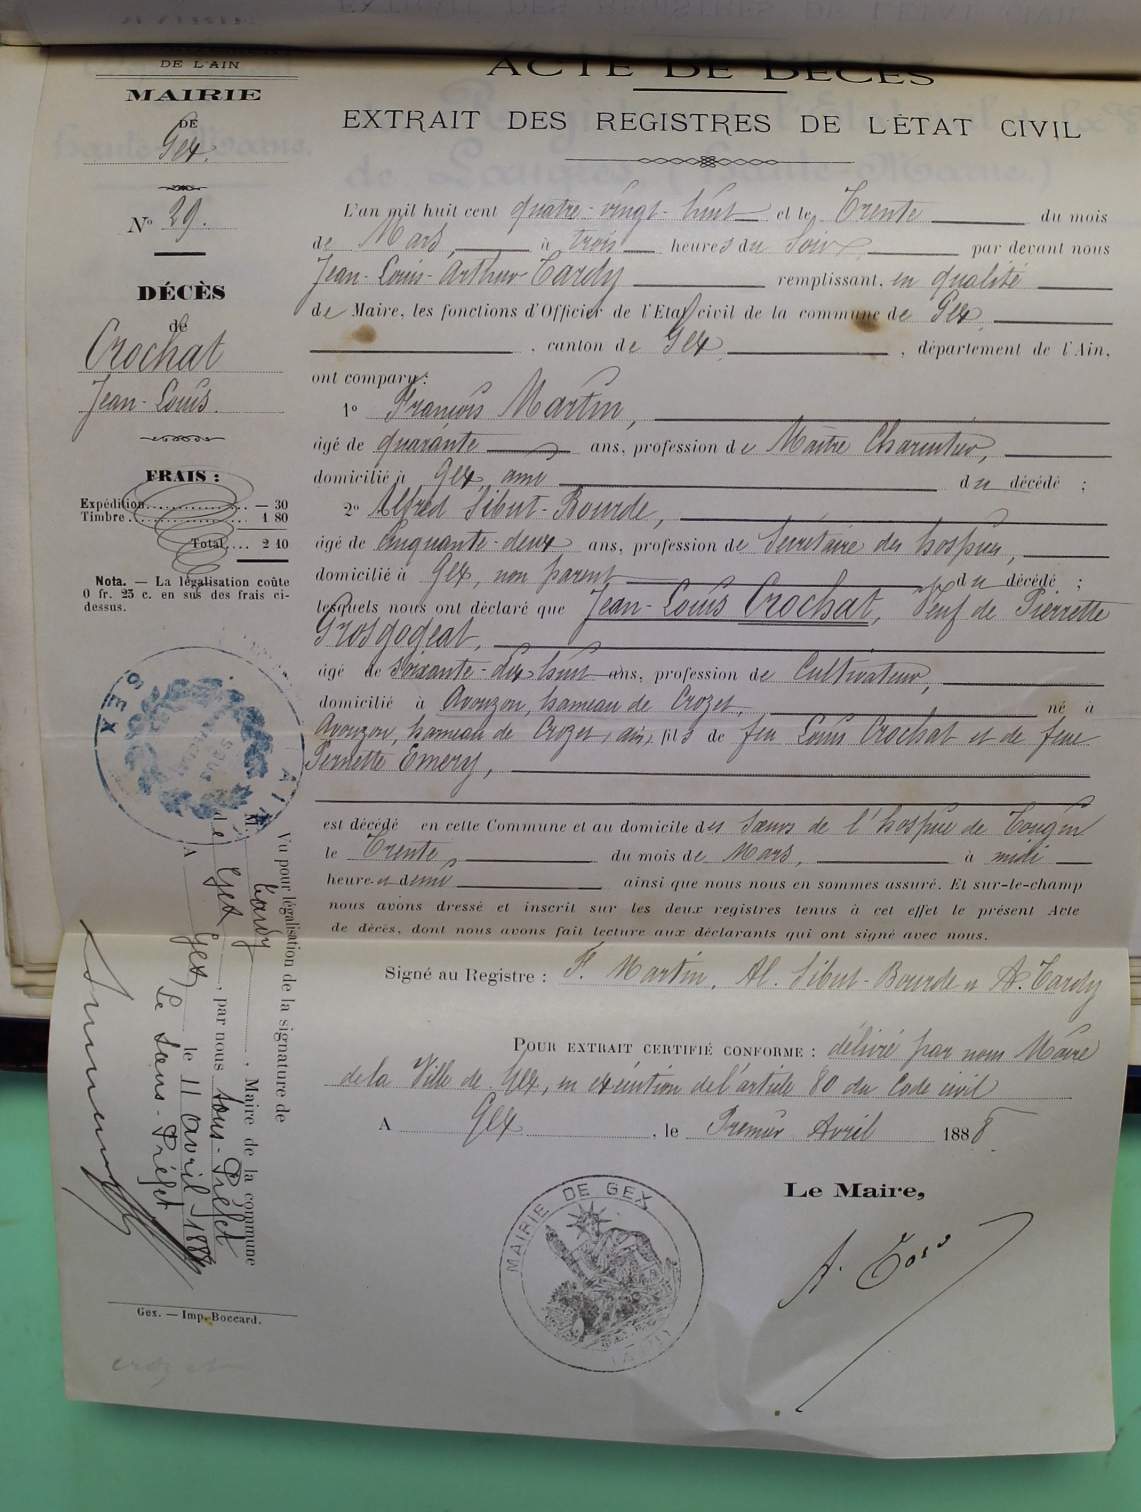 DE L'AIN
MAIRIE
DE
Gex.
N° 29.
DÉCÈS
de
Crochat
Jean-Louis.
FRAIS :
Expédition — 30
Timbre 1 80
Total 2 10
Nota. — La légalisation coûte
0 fr. 25 c. en sus des frais ci-
dessus.
ACTE DE DÉCÈS
EXTRAIT DES REGISTRES DE L'ÉTAT CIVIL
L'an mil huit cent quatre-vingt-huit et le Trente du mois
de Mars, à trois heures du Soir, par devant nous
Jean-Louis-Arthur Tardy remplissant, en qualité
de Maire, les fonctions d'Officier de l'Etat civil de la commune de Gex,
, canton de Gex, , département de l'Ain,
ont comparu :
1° François Martin,
âgé de quarante ans, profession de Maître Charpentier,
domicilié à Gex, ami du décédé ;
2° Alfred Sibut-Bourde,
âgé de Cinquante-deux ans, profession de Secrétaire des hospices,
domicilié à Gex, non parent du décédé ;
lesquels nous ont déclaré que Jean-Louis Crochat, Veuf de Pierrette
Grosgogeat,
âgé de Soixante-dix huit ans, profession de Cultivateur,
domicilié à Avouzon, hameau de Crozet, né à
Avouzon, hameau de Crozet, ain, fils de feu Louis Crochat et de feue
Pernette Emery,
est décédé en cette Commune et au domicile des Sœurs de l'hospice de Tougin
le Trente, du mois de Mars, à midi
heure et demi ainsi que nous nous en sommes assuré. Et sur-le-champ
nous avons dressé et inscrit sur les deux registres tenus à cet effet le présent Acte
de décès, dont nous avons fait lecture aux déclarants qui ont signé avec nous.
Signé au Registre : F. Martin, Al. Sibut-Bourde et A. Tardy
POUR EXTRAIT CERTIFIÉ CONFORME : délivré par nous Maire
de la Ville de Gex, en exécution de l'article 80 du Code civil
A Gex , le Premier Avril 1888
Le Maire,
A. Tardy
MAIRIE DE GEX
(AIN)
GEX
AIN
Vu pour légalisation de la signature de
M. Tardy , Maire de la commune
de Gex , par nous Sous-Préfet
A Gex le 11 avril 1888
Le Sous-Préfet
Gex. — Imp. Boccard.
crozet